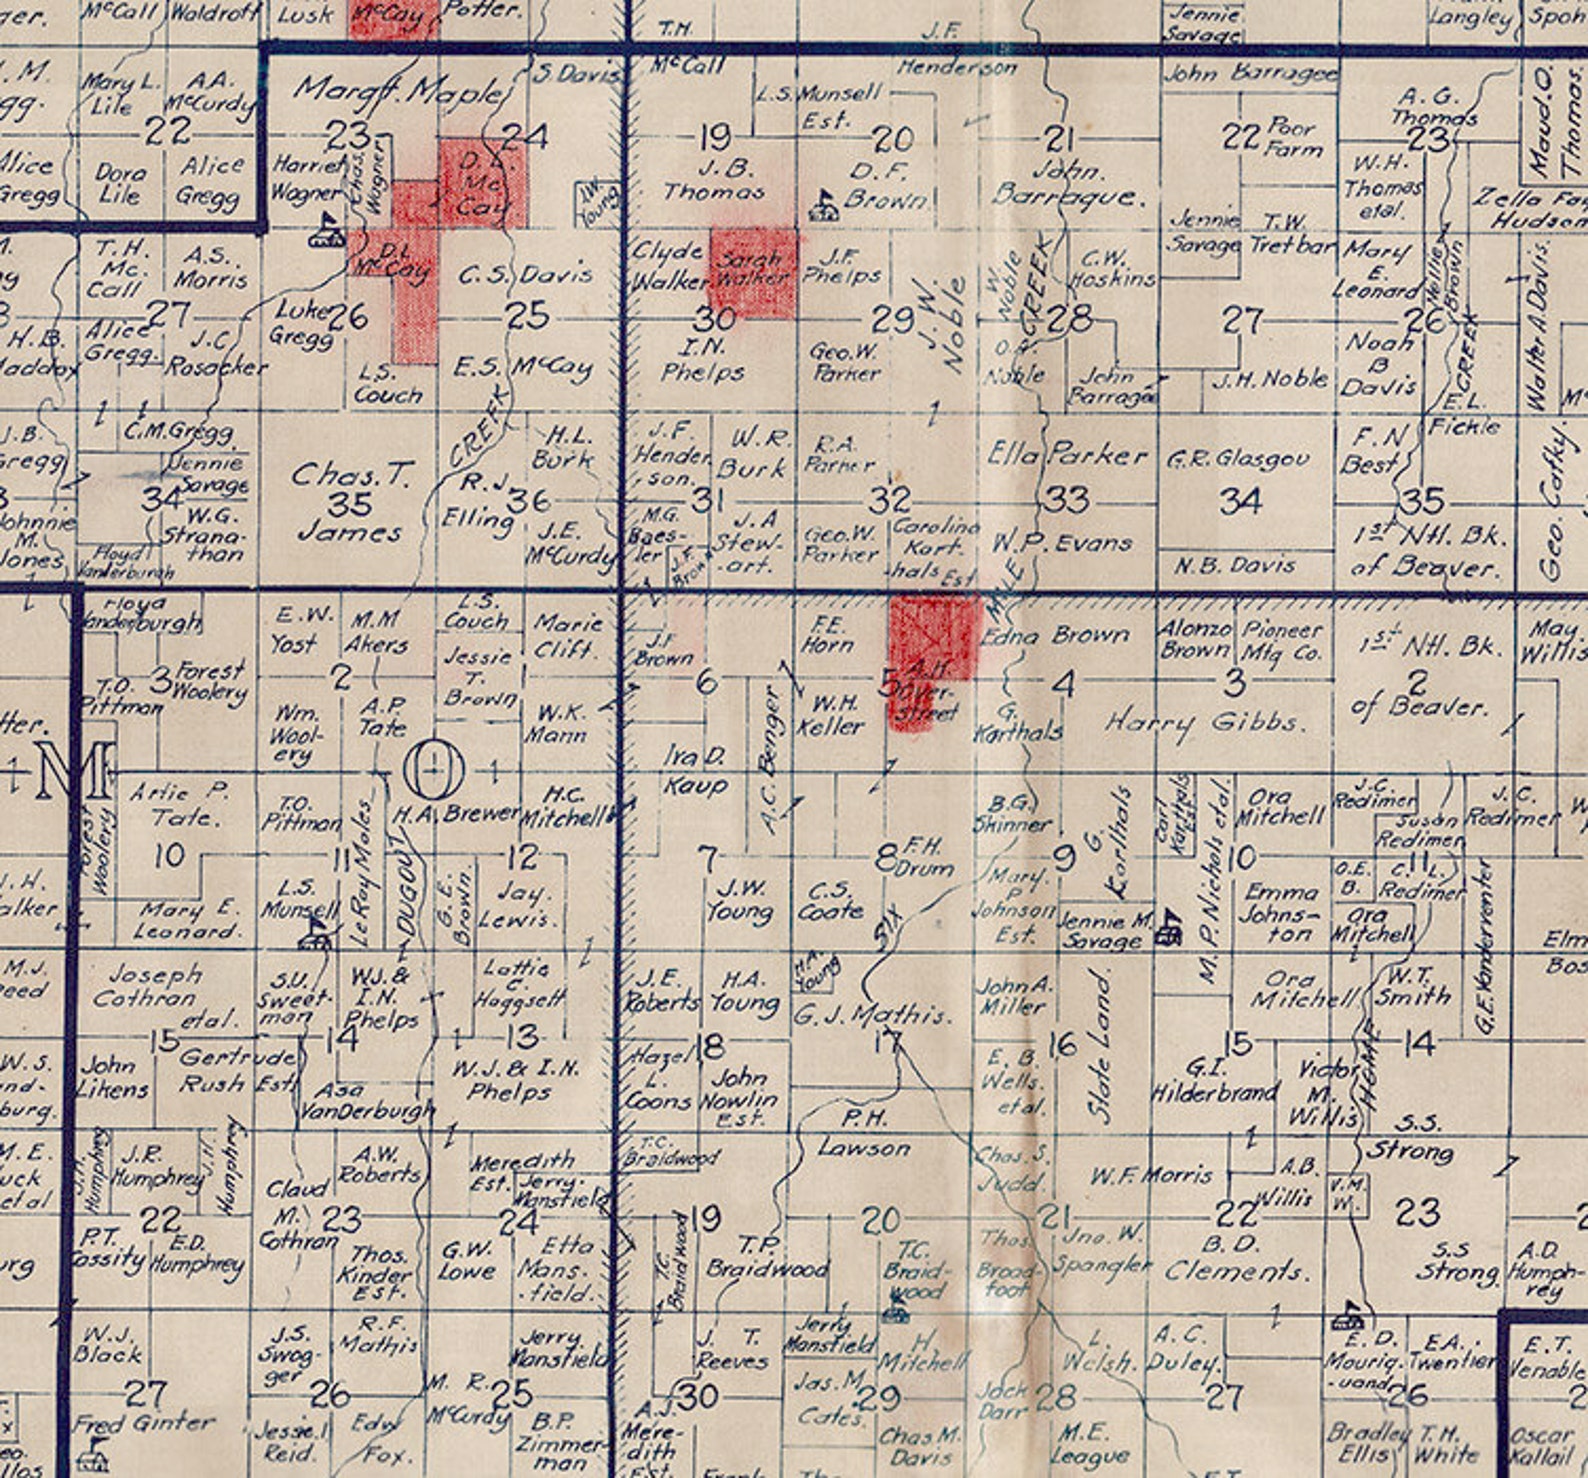 McCall
Waldroff
Lusk
McCay
Potter.
T.H.
McCall
J.F.
Henderson
Jennie
Savage
Langley
Spoh
Mary L.
Lile
A.A.
McCurdy
22
Dora
Lile
Alice
Gregg
Alice
Gregg
Margt. Maple
S. Davis
23
24
Harriet
Wagner
Chas.
Wagner
D.L.
Mc
Cay
J.W.
Young
L.S. Munsell
Est.
19
20
J.B.
Thomas
D.F.
Brown
21
John.
Barraque.
John Barragee
22
Poor
Farm
Jennie
Savage
T.W.
Tretbar
A.G.
Thomas
23
W.H.
Thomas
etal.
Maud.O.
Thomas.
Zella Fay
Hudson
T.H.
Mc.
Call
A.S.
Morris
27
Alice
Gregg.
J.C.
Rosacker
H.B.
D.L.
McCay
Luke
Gregg
26
L.S.
Couch
C.S. Davis
25
E.S. McCay
Clyde
Walker
Sarah
Walker
30
I.N.
Phelps
J.F.
Phelps
29
Geo.W.
Parker
J.W.
Noble
W.
Noble
CREEK
C.W.
Hoskins
28
O.R.
Noble
John
Barragee
27
J.H. Noble
Mary
E.
Leonard
Nellie
Brown
26
Noah
B
Davis
CREEK
E.L.
Fickle
Walter A Davis.
J.B.
Gregg
C.M. Gregg
Jennie
Savage
34
W.G.
Strana-
than
Floyd
Vanderburgh
Johnnie
M.
Jones
Chas. T.
35
James
CREEK
R.J.
Elling
36
H.L.
Burk
J.E.
McCurdy
J.F.
Hender
son.
W.R.
Burk
31
M.G.
Baes-
ler
J.F.
Brown
J.A
Stew-
art.
R.A.
Parker
32
Geo.W.
Parker
Carolina
Kort-
hals Est
Ella Parker
33
W.P. Evans
G.R. Glasgow
34
N.B. Davis
F.N
Best
35
1st Ntl. Bk.
of Beaver.
Geo. Cafky.
Floyd
Vanderburgh
3
Forest
Woolery
T.O.
Pittman
E.W.
Yost
M.M
Akers
2
Wm.
Wool-
ery
A.P.
Tate
L.S.
Couch
Jessie
T.
Brown
Marie
Clift.
W.K.
Mann
J.F
Brown
6
Ira D.
Kaup
A.C. Benger
F.E.
Horn
5
W.H.
Keller
A.H.
Over-
street
MILE
Edna Brown
4
G.
Korthals
Harry Gibbs.
Alonzo
Brown
Pioneer
Mtg Co.
3
1st Ntl. Bk.
2
of Beaver.
May
Willis
M
O
Artie P.
Tate.
10
Forest
Woolery
Mary E.
Leonard.
T.O.
Pittman
11
L.S.
Munsell
LeRoy Moles
DUGOUT
H.A. Brewer
H.C.
Mitchell
12
G.E.
Brown.
Jay.
Lewis.
7
J.W.
Young
8
F.H.
Drum
C.S.
Coate
SIX
B.G.
Skinner
9
G.
Korthals
Mary.
P
Johnson
Est.
Jennie M.
Savage
Carl
Korthals
Est.
M. P. Nichols etal.
10
Ora
Mitchell
Emma
Johns-
ton
J.C.
Redimer
Susan
Redimer
11
O.E.
B.
C.L.
Redimer
Ora
Mitchell
J.C.
Redimer
G.E. Vanderventer
M.J.
Joseph
Cothran
etal.
15
John
Likens
Gertrude
Rush Est.
S.U.
Sweet-
man
W.J. &
I.N.
Phelps
14
Asa
VanDerburgh
Lottie
C.
Hoggsett
13
W.J. & I.N.
Phelps
J.E.
Roberts
H.A.
Young
18
Hazel
L.
Coons
John
Nowlin
Est.
H.A.
Young
G.J. Mathis.
17
P.H.
Lawson
John A.
Miller
16
State Land.
E.B.
Wells.
et al.
15
Ora
Mitchell
G.I.
Hilderbrand
Victor
M.
Willis
W.T.
Smith
14
HOME
S.S.
Strong
J.H.
Humphrey
J.R.
Humphrey
J.H.
Humphrey
22
P.T.
Cassity
E.D.
Humphrey
A.W.
Roberts
Claud
M.
Cothran
23
Thos.
Kinder
Est.
Meredith
Est.
Jerry
Mansfield
24
G.W.
Lowe
Etta
Mans.
field.
T.C.
Braidwood
19
T.C.
Braidwood
T.P.
Braidwood
20
T.C.
Braid-
wood
Chas. S.
Judd.
21
Thos.
Broad-
foot
Jno. W.
Spangler
W.F. Morris
22
B.D.
Clements.
A.B.
Willis
V.M.
W.
23
S.S
Strong
A.D.
Humph-
rey
W.J.
Black
27
Fred Ginter
J.S.
Swog-
ger
R.F.
Mathis
26
Jessie I
Reid.
Edw
Fox.
M. R.
McCurdy
25
Jerry
Mansfield
B.P.
Zimmer-
man
J. T.
Reeves
30
A.J.
Mere-
dith
Est.
Jerry
Mansfield
Jas. M.
Cates.
29
H.
Mitchell
Chas M.
Davis
Jack
Darr
28
L.
Welsh.
M.E.
League
A.C.
Duley.
27
E.D.
Mourig-
uand
26
E.A.
Twentier
Bradley
Ellis
T.H.
White
E.T.
Venable
Oscar
Kallail